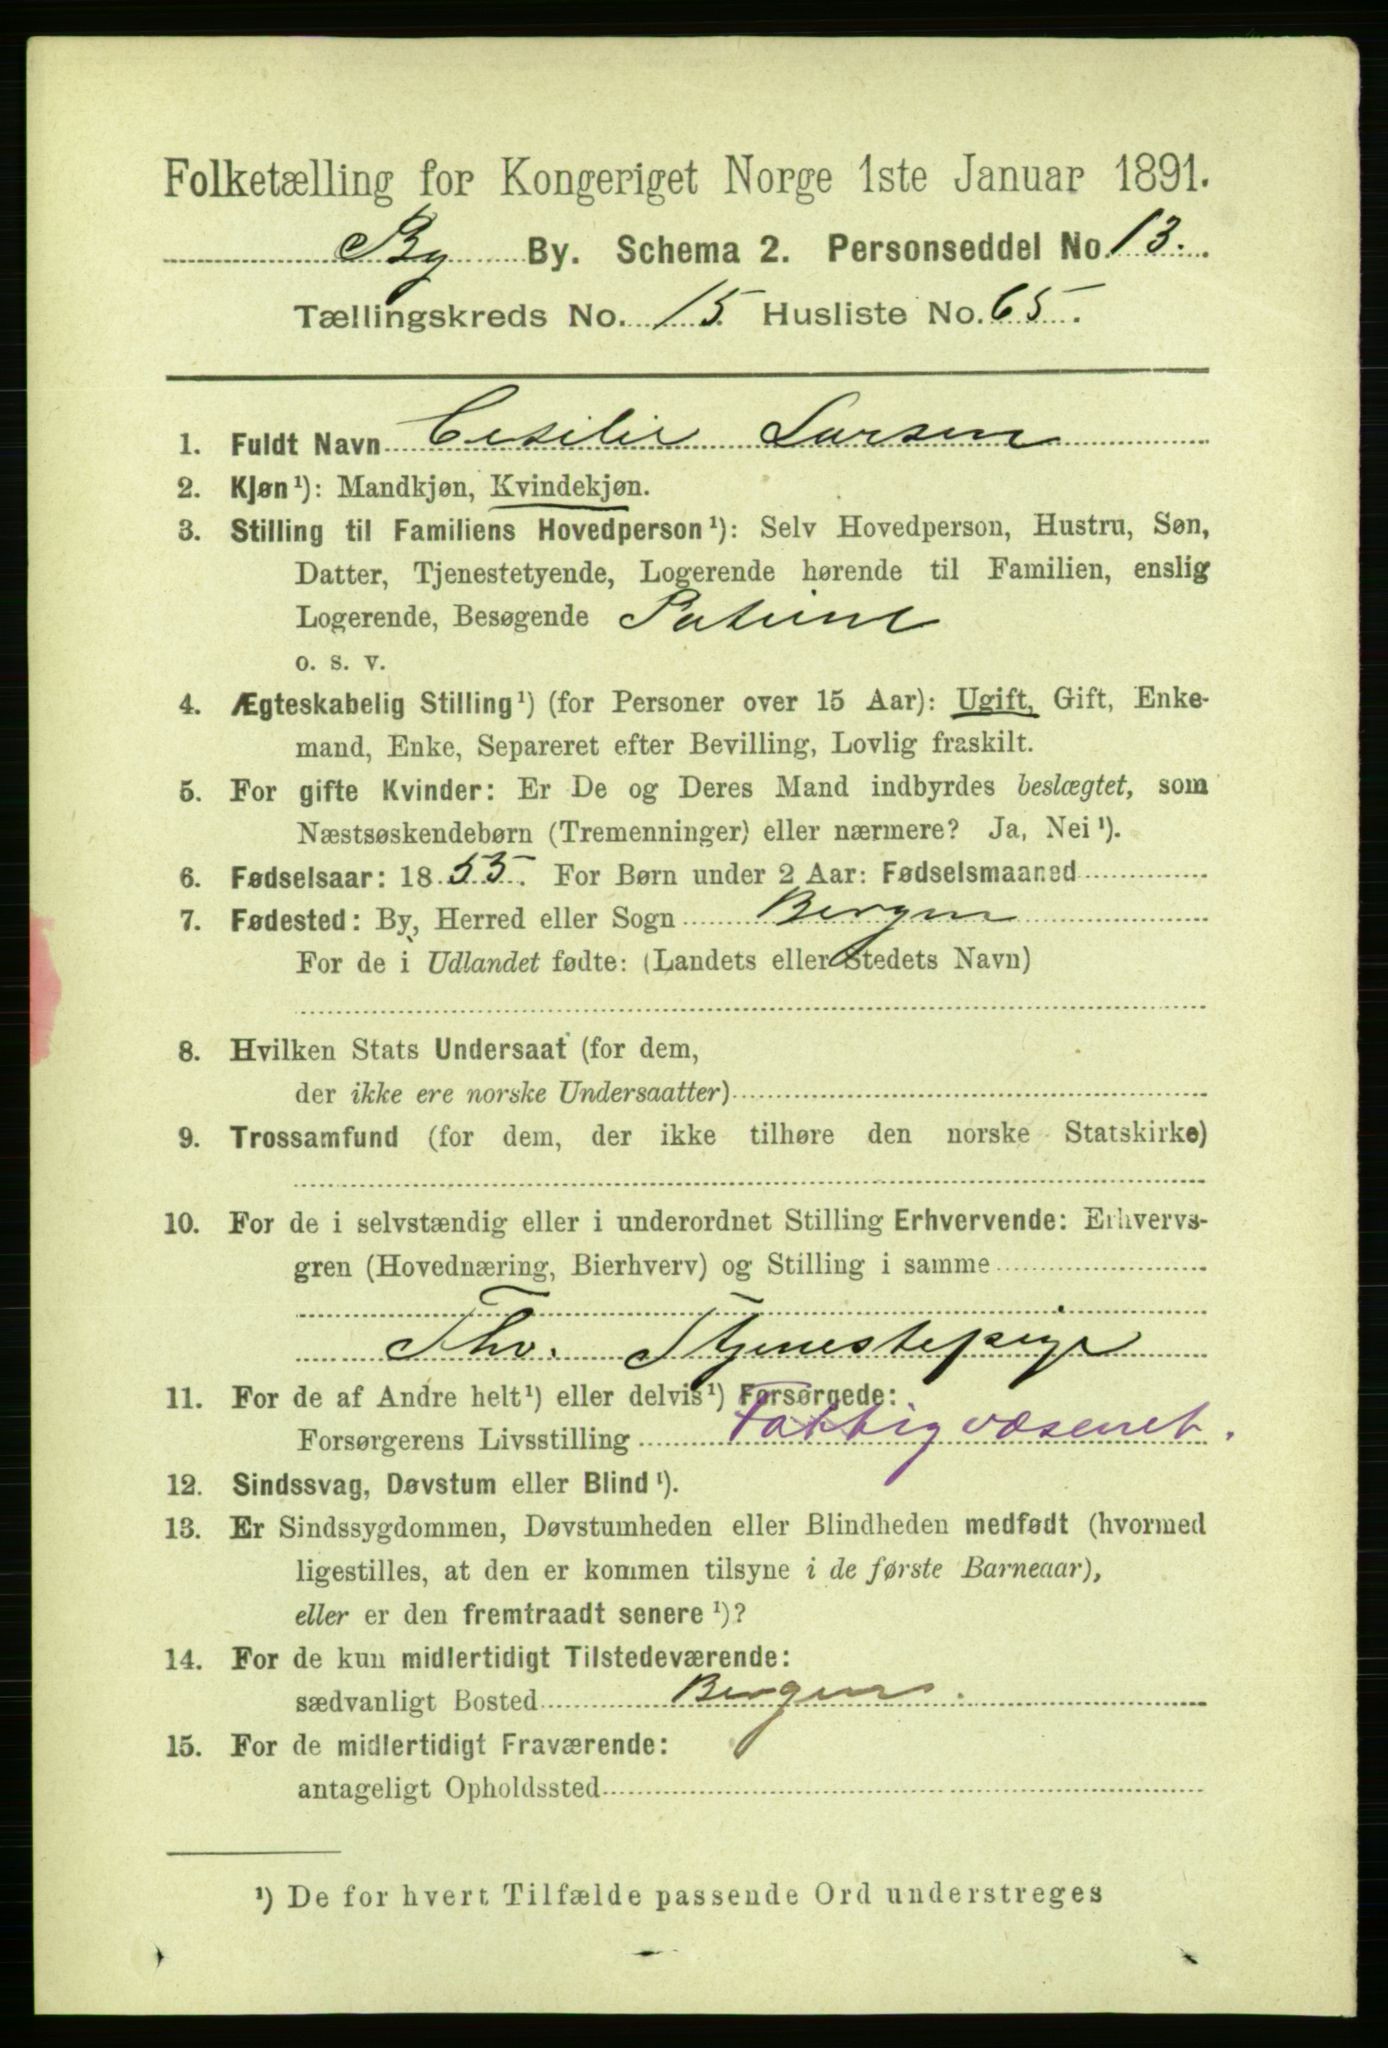 Folketælling for Kongeriget Norge 1ste Januar 1891.
By By. Schema 2. Personseddel No. 13.
Tællingskreds No. 15 Husliste No. 65.
1. Fuldt Navn Cesilie Larsen
2. Kjøn¹): Mandkjøn, Kvindekjøn.
3. Stilling til Familiens Hovedperson¹): Selv Hovedperson, Hustru, Søn,
Datter, Tjenestetyende, Logerende hørende til Familien, enslig
Logerende, Besøgende Patient
o. s. v.
4. Ægteskabelig Stilling¹) (for Personer over 15 Aar): Ugift, Gift, Enke-
mand, Enke, Separeret efter Bevilling, Lovlig fraskilt.
5. For gifte Kvinder: Er De og Deres Mand indbyrdes beslægtet, som
Næstsøskendebørn (Tremenninger) eller nærmere? Ja, Nei¹).
6. Fødselsaar: 1853. For Børn under 2 Aar: Fødselsmaaned
7. Fødested: By, Herred eller Sogn Bergen
For de i Udlandet fødte: (Landets eller Stedets Navn)
8. Hvilken Stats Undersaat (for dem,
der ikke ere norske Undersaatter)
9. Trossamfund (for dem, der ikke tilhøre den norske Statskirke)
10. For de i selvstændig eller i underordnet Stilling Erhvervende: Erhvervs-
gren (Hovednæring, Bierhverv) og Stilling i samme
Fhv. Tjenestepige
11. For de af Andre helt¹) eller delvis¹) Forsørgede:
Forsørgerens Livsstilling Fattigvæsenet.
12. Sindssvag, Døvstum eller Blind¹).
13. Er Sindssygdommen, Døvstumheden eller Blindheden medfødt (hvormed
ligestilles, at den er kommen tilsyne i de første Barneaar),
eller er den fremtraadt senere¹)?
14. For de kun midlertidigt Tilstedeværende:
sædvanligt Bosted Bergen.
15. For de midlertidigt Fraværende:
antageligt Opholdssted
¹) De for hvert Tilfælde passende Ord understreges